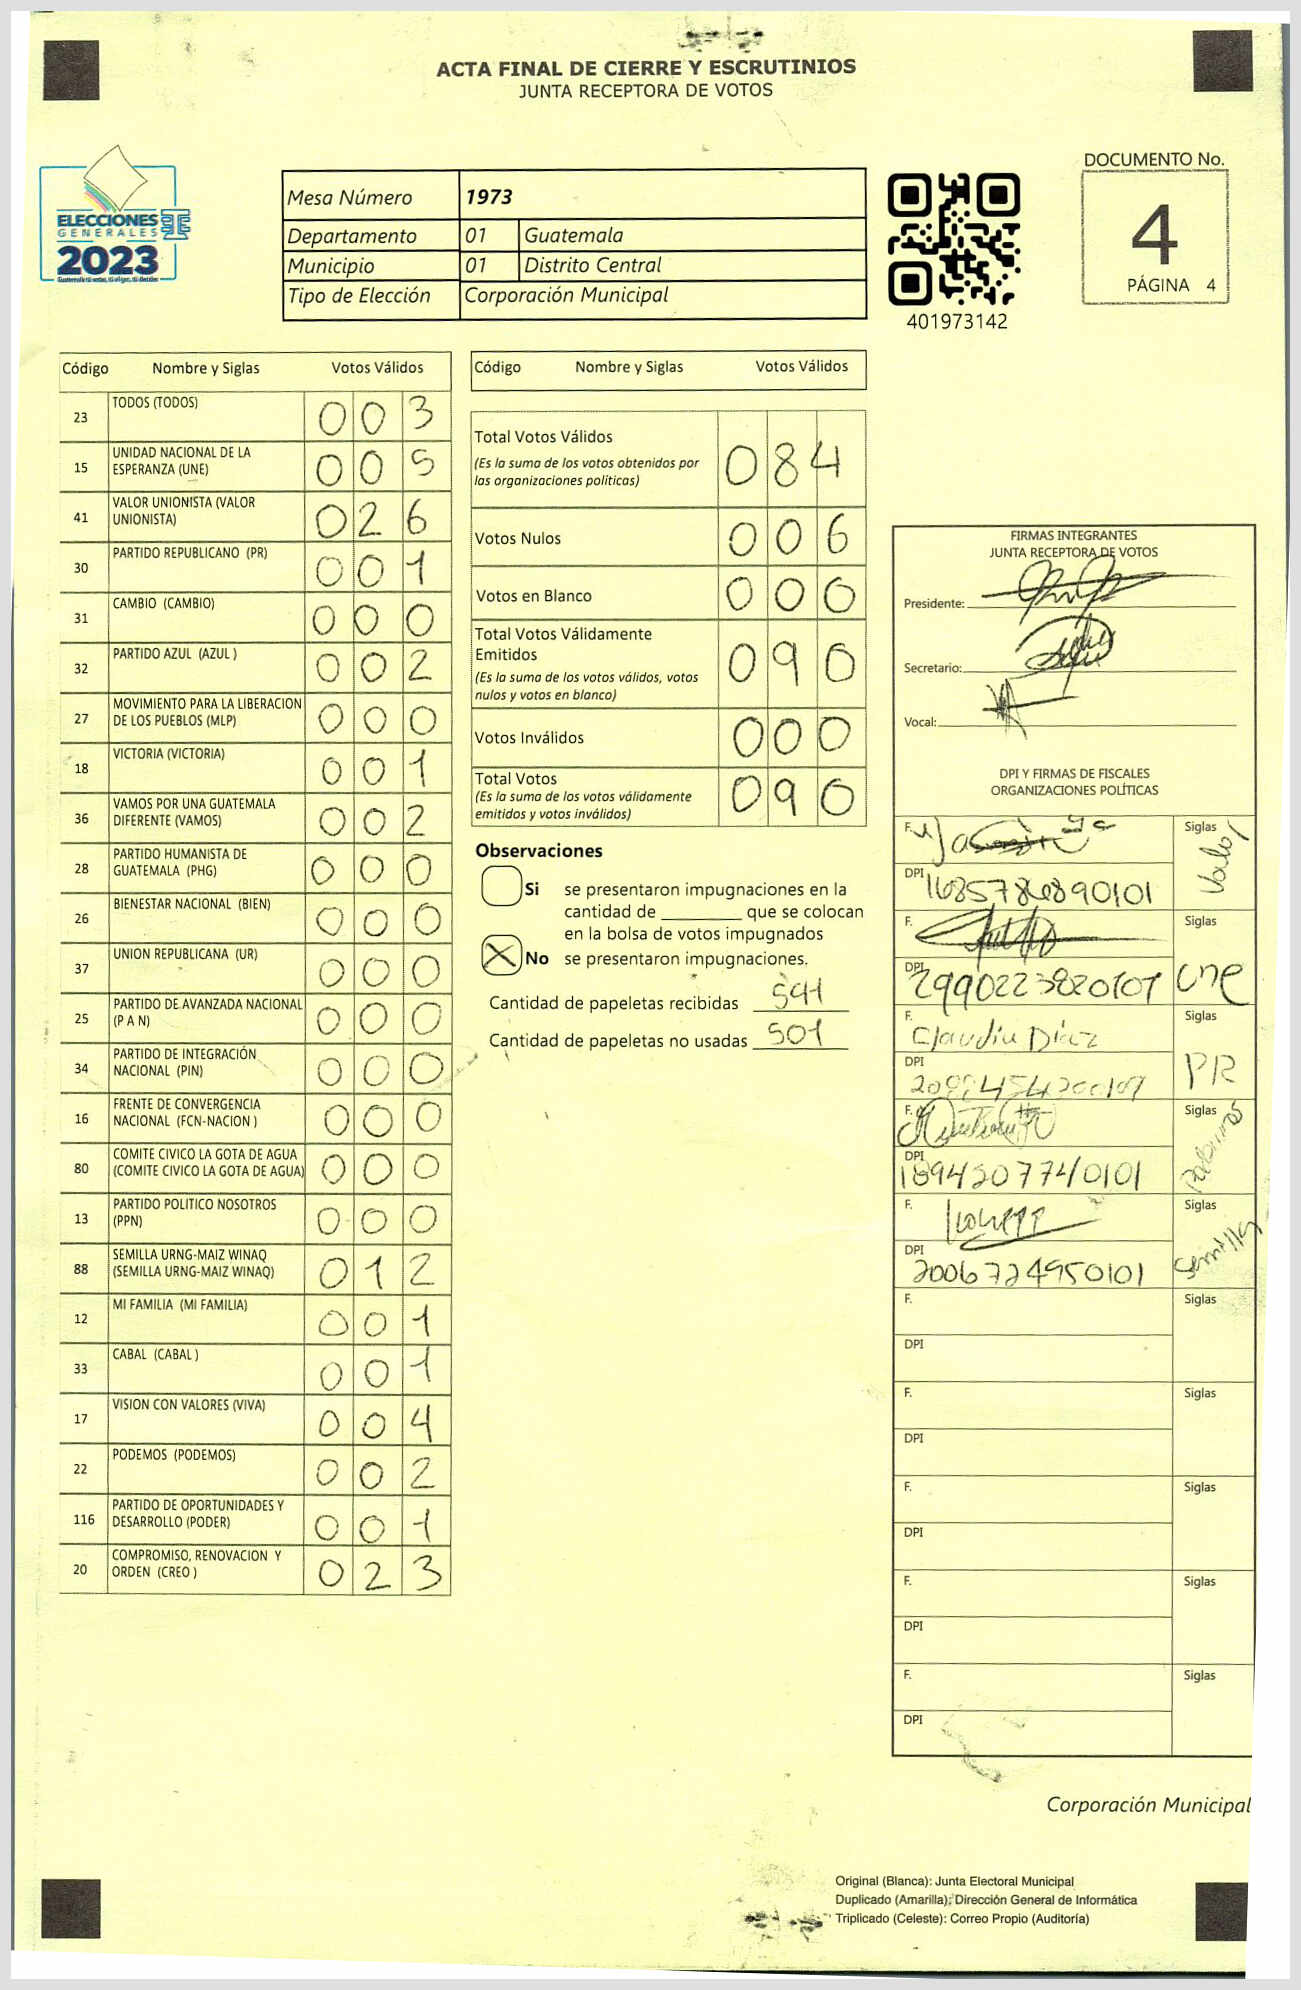 ACTA FINAL DE CIERRE Y ESCRUTINIOS
JUNTA RECEPTORA DE VOTOS
ELECCIONES
GENERALES
2023
Mesa Número 1973
Departamento 01 Guatemala
Municipio 01 Distrito Central
Tipo de Elección Corporación Municipal
401973142
DOCUMENTO No.
4
PÁGINA 4
Código Nombre y Siglas Votos Válidos
23 TODOS (TODOS) 0 0 3
15 UNIDAD NACIONAL DE LA
ESPERANZA (UNE) 0 0 5
41 VALOR UNIONISTA (VALOR
UNIONISTA) 0 2 6
30 PARTIDO REPUBLICANO (PR) 0 0 1
31 CAMBIO (CAMBIO) 0 0 0
32 PARTIDO AZUL (AZUL ) 0 0 2
27 MOVIMIENTO PARA LA LIBERACION
DE LOS PUEBLOS (MLP) 0 0 0
18 VICTORIA (VICTORIA) 0 0 1
36 VAMOS POR UNA GUATEMALA
DIFERENTE (VAMOS) 0 0 2
28 PARTIDO HUMANISTA DE
GUATEMALA (PHG) 0 0 0
26 BIENESTAR NACIONAL (BIEN) 0 0 0
37 UNION REPUBLICANA (UR) 0 0 0
25 PARTIDO DE AVANZADA NACIONAL
(P A N) 0 0 0
34 PARTIDO DE INTEGRACIÓN
NACIONAL (PIN) 0 0 0
16 FRENTE DE CONVERGENCIA
NACIONAL (FCN-NACION ) 0 0 0
80 COMITE CIVICO LA GOTA DE AGUA
(COMITE CIVICO LA GOTA DE AGUA) 0 0 0
13 PARTIDO POLITICO NOSOTROS
(PPN) 0 0 0
88 SEMILLA URNG-MAIZ WINAQ
(SEMILLA URNG-MAIZ WINAQ) 0 1 2
12 MI FAMILIA (MI FAMILIA) 0 0 1
33 CABAL (CABAL ) 0 0 1
17 VISION CON VALORES (VIVA) 0 0 4
22 PODEMOS (PODEMOS) 0 0 2
116 PARTIDO DE OPORTUNIDADES Y
DESARROLLO (PODER) 0 0 1
20 COMPROMISO, RENOVACION Y
ORDEN (CREO ) 0 2 3
Código Nombre y Siglas Votos Válidos
Total Votos Válidos 0 8 4
(Es la suma de los votos obtenidos por
las organizaciones políticas)
Votos Nulos 0 0 6
Votos en Blanco 0 0 0
Total Votos Válidamente
Emitidos 0 9 0
(Es la suma de los votos válidos, votos
nulos y votos en blanco)
Votos Inválidos 0 0 0
Total Votos 0 9 0
(Es la suma de los votos válidamente
emitidos y votos inválidos)
Observaciones
Si se presentaron impugnaciones en la
cantidad de ________ que se colocan
en la bolsa de votos impugnados
X No se presentaron impugnaciones.
Cantidad de papeletas recibidas 591
Cantidad de papeletas no usadas 501
FIRMAS INTEGRANTES
JUNTA RECEPTORA DE VOTOS
Presidente:
Secretario:
Vocal:
DPI Y FIRMAS DE FISCALES
ORGANIZACIONES POLÍTICAS
F. Siglas Valor
DPI
F. Siglas une
DPI 2990223820101
F. Claudia Díaz Siglas PR
DPI
F. Siglas
DPI 1894207740101
F. Siglas Semilla
DPI 2006724950101
F. Siglas
DPI
F. Siglas
DPI
F. Siglas
DPI
F. Siglas
DPI
F. Siglas
DPI
Corporación Municipal
Original (Blanca): Junta Electoral Municipal
Duplicado (Amarilla): Dirección General de Informática
Triplicado (Celeste): Correo Propio (Auditoría)